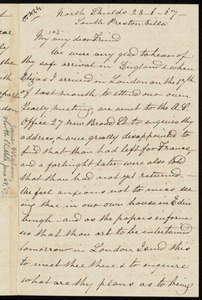 North Shields 28. 6 - 67
South Preston Villa
My very dear Friend
We were very glad to hear of
thy safe arrival in England & when
Elijah & I arrived in London on the 17th
of last month to attend our own
Yearly Meeting we went to the A. S.
Office 27 New Broad St to enquire thy
address, & were greatly disappointed to
find that thou had left for France,
and a fortnight later were also told
that thou had not yet returned.
We feel anxious not to miss see
ing thee in our own house in Edin
burgh - and as the papers inform
us that thou art to be entertained
tomorrow in London I send this
to meet thee there & to enquire
what are thy plans as to being